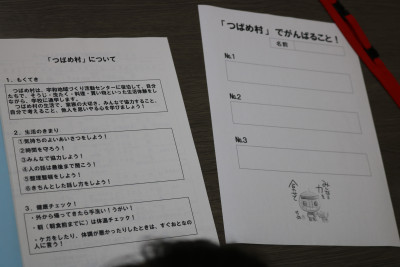 「つばめ村」について
1．もくてき
つばめ村は、宇和地域づくり活動センターに宿泊して、自分
たちで、そうじ・洗たく・料理・買い物といった生活体験をし
ながら、学校に通学します。
つばめ村の生活で、家族の大切さ、みんなで協力すること、
自分で考えること、他人を思いやる心を学びましょう！
2．生活のきまり
①気持ちのよいあいさつをしよう！
②時間を守ろう！
③みんなで協力しよう！
④人の話は最後まで聞こう！
⑤整理整頓をしよう！
⑥きちんとした話し方をしよう！
3．健康チェック！
・外から帰ってきたら手洗い！うがい！
・朝（朝食前までに）は体温チェック！
・ケガをしたり、体調が悪かったりしたときは、すぐおとなの
人に言う！
「つばめ村」でがんばること！
名前
№1
№2
№3